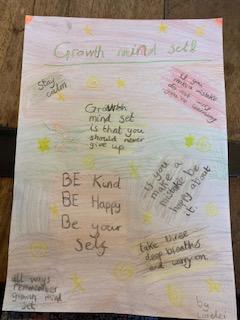 Growth mind set!
Stay
calm
if you
make a mistake
you're learning
Growth
mind set
is that you
should never
give up
BE Kind
BE Happy
Be your
Self
If you
make a
mistake be
happy about
it
take three
deep breaths
and carry on
all ways
remember
growth mind
set
by